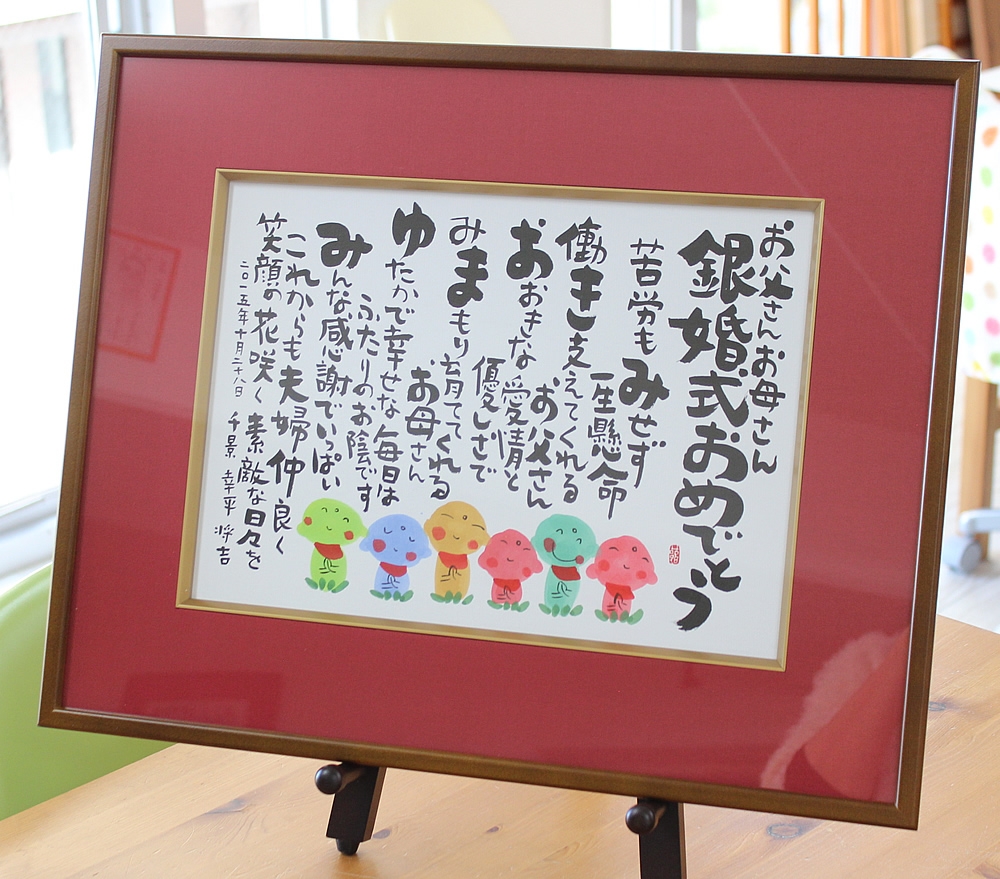 お父さんお母さん
銀婚式おめでとう
苦労もみせず
一生懸命
働き支えてくれる
お父さん
おおきな愛情と
優しさで
みまもり育ててくれる
お母さん
ゆたかで幸せな毎日は
ふたりのお陰です
みんな感謝でいっぱい
これからも夫婦仲良く
笑顔の花咲く素敵な日々を
二〇一五年十月二十八日 千景 幸平 将吉